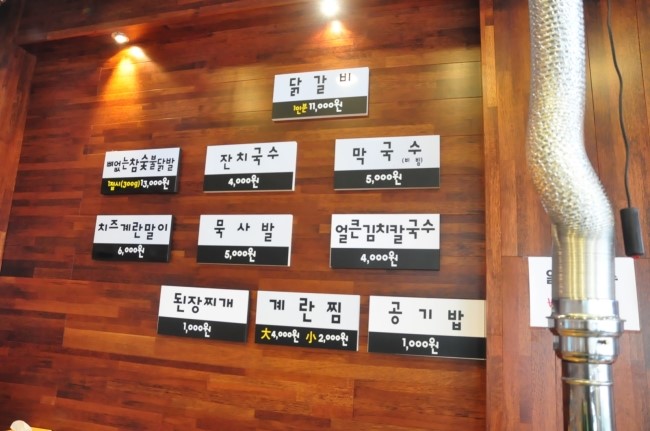 닭갈비
1인분 11,000원
뼈없는참숯불닭발
1접시(300g) 13,000원
잔치국수
4,000원
막국수
(비빔)
5,000원
치즈계란말이
6,000원
묵사발
5,000원
얼큰김치칼국수
4,000원
된장찌개
1,000원
계란찜
大4,000원 小2,000원
공기밥
1,000원